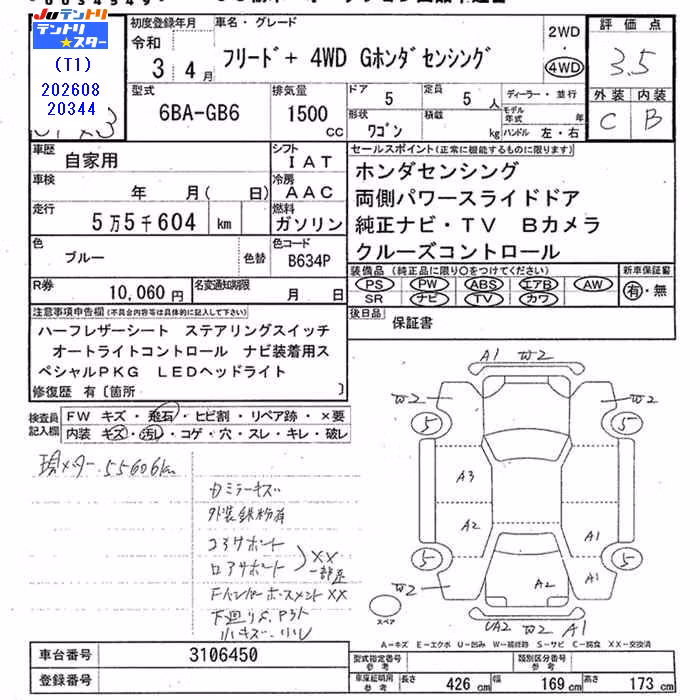 Juテントリ
テントリ
★スター
(T1)
202608
20344
初度登録年月
令和
3年 4月
車名・グレード
フリード+ 4WD Gホンダセンシング
2WD
・
4WD
評価点
3.5
外装 内装
C B
型式
6BA-GB6
排気量
1500
CC
ドア
5
定員
5人
形状
ワゴン
積載
kg
ディーラー・並行
モデル年式 年
ハンドル 左・右
車歴
自家用
シフト
IAT
車検
年 月( 日)
冷房
AAC
走行
5万5千604 km
燃料
ガソリン
色
ブルー
色替
色コード
B634P
R券
10,060円
名変通知期限
月 日
セールスポイント(正常に機能するものに限ります)
ホンダセンシング
両側パワースライドドア
純正ナビ・TV Bカメラ
クルーズコントロール
装備品(純正品に限り○をつけてください)
PS PW ABS エアB AW
SR ナビ TV カワ
新車保証書
有・無
後日品
保証書
注意事項申告欄(不具合内容等は具体的に記入して下さい)
ハーフレザーシート ステアリングスイッチ
オートライトコントロール ナビ装着用ス
ペシャルPKG LEDヘッドライト
修復歴 有〔箇所 〕
検査員
記入欄
FW キズ・飛石・ヒビ割・リペア跡・×要
内装 キズ・汚レ・コゲ・穴・スレ・キレ・破レ
現メーター 55606km
カミラーキズ
外装鉄粉有
コアサポート
ロアサポート
××
一部
××
下廻りサビ
A1 W2
W2
W2
5
5
A3
A2
A1
5
5
A1
W2
A2
UA2 W2 A1
スペア
A-キズ E-エクボ U-凹み W-補修跡 S-サビ C-腐食 XX-交換済
車台番号
3106450
登録番号
型式指定番号
参考
類別区分番号
参考
車庫証明用
参考
長さ 426 cm
幅 169 cm
高さ 173 cm